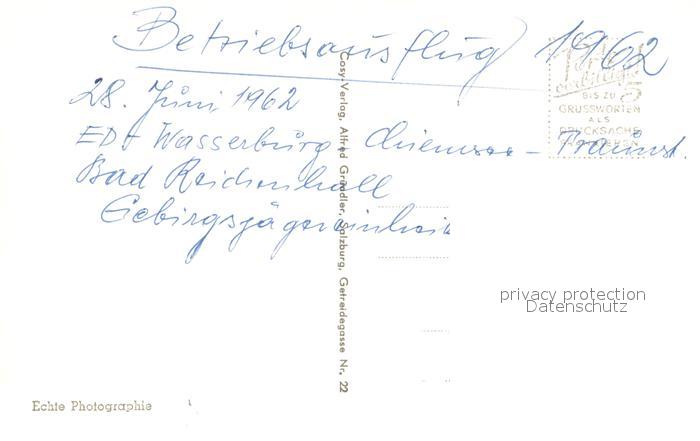 Betriebsausflug 1962
28. Juni 1962
EDt Wasserburg Chiemsee - Traunst.
Bad Reichenhall
Gebirgsjägereinheit
Cosy-Verlag, Alfred Gründler, Salzburg, Getreidegasse Nr. 22
5
BIS ZU
GRUSSWORTEN
ALS
DRUCKSACHE
privacy protection
Datenschutz
Echte Photographie